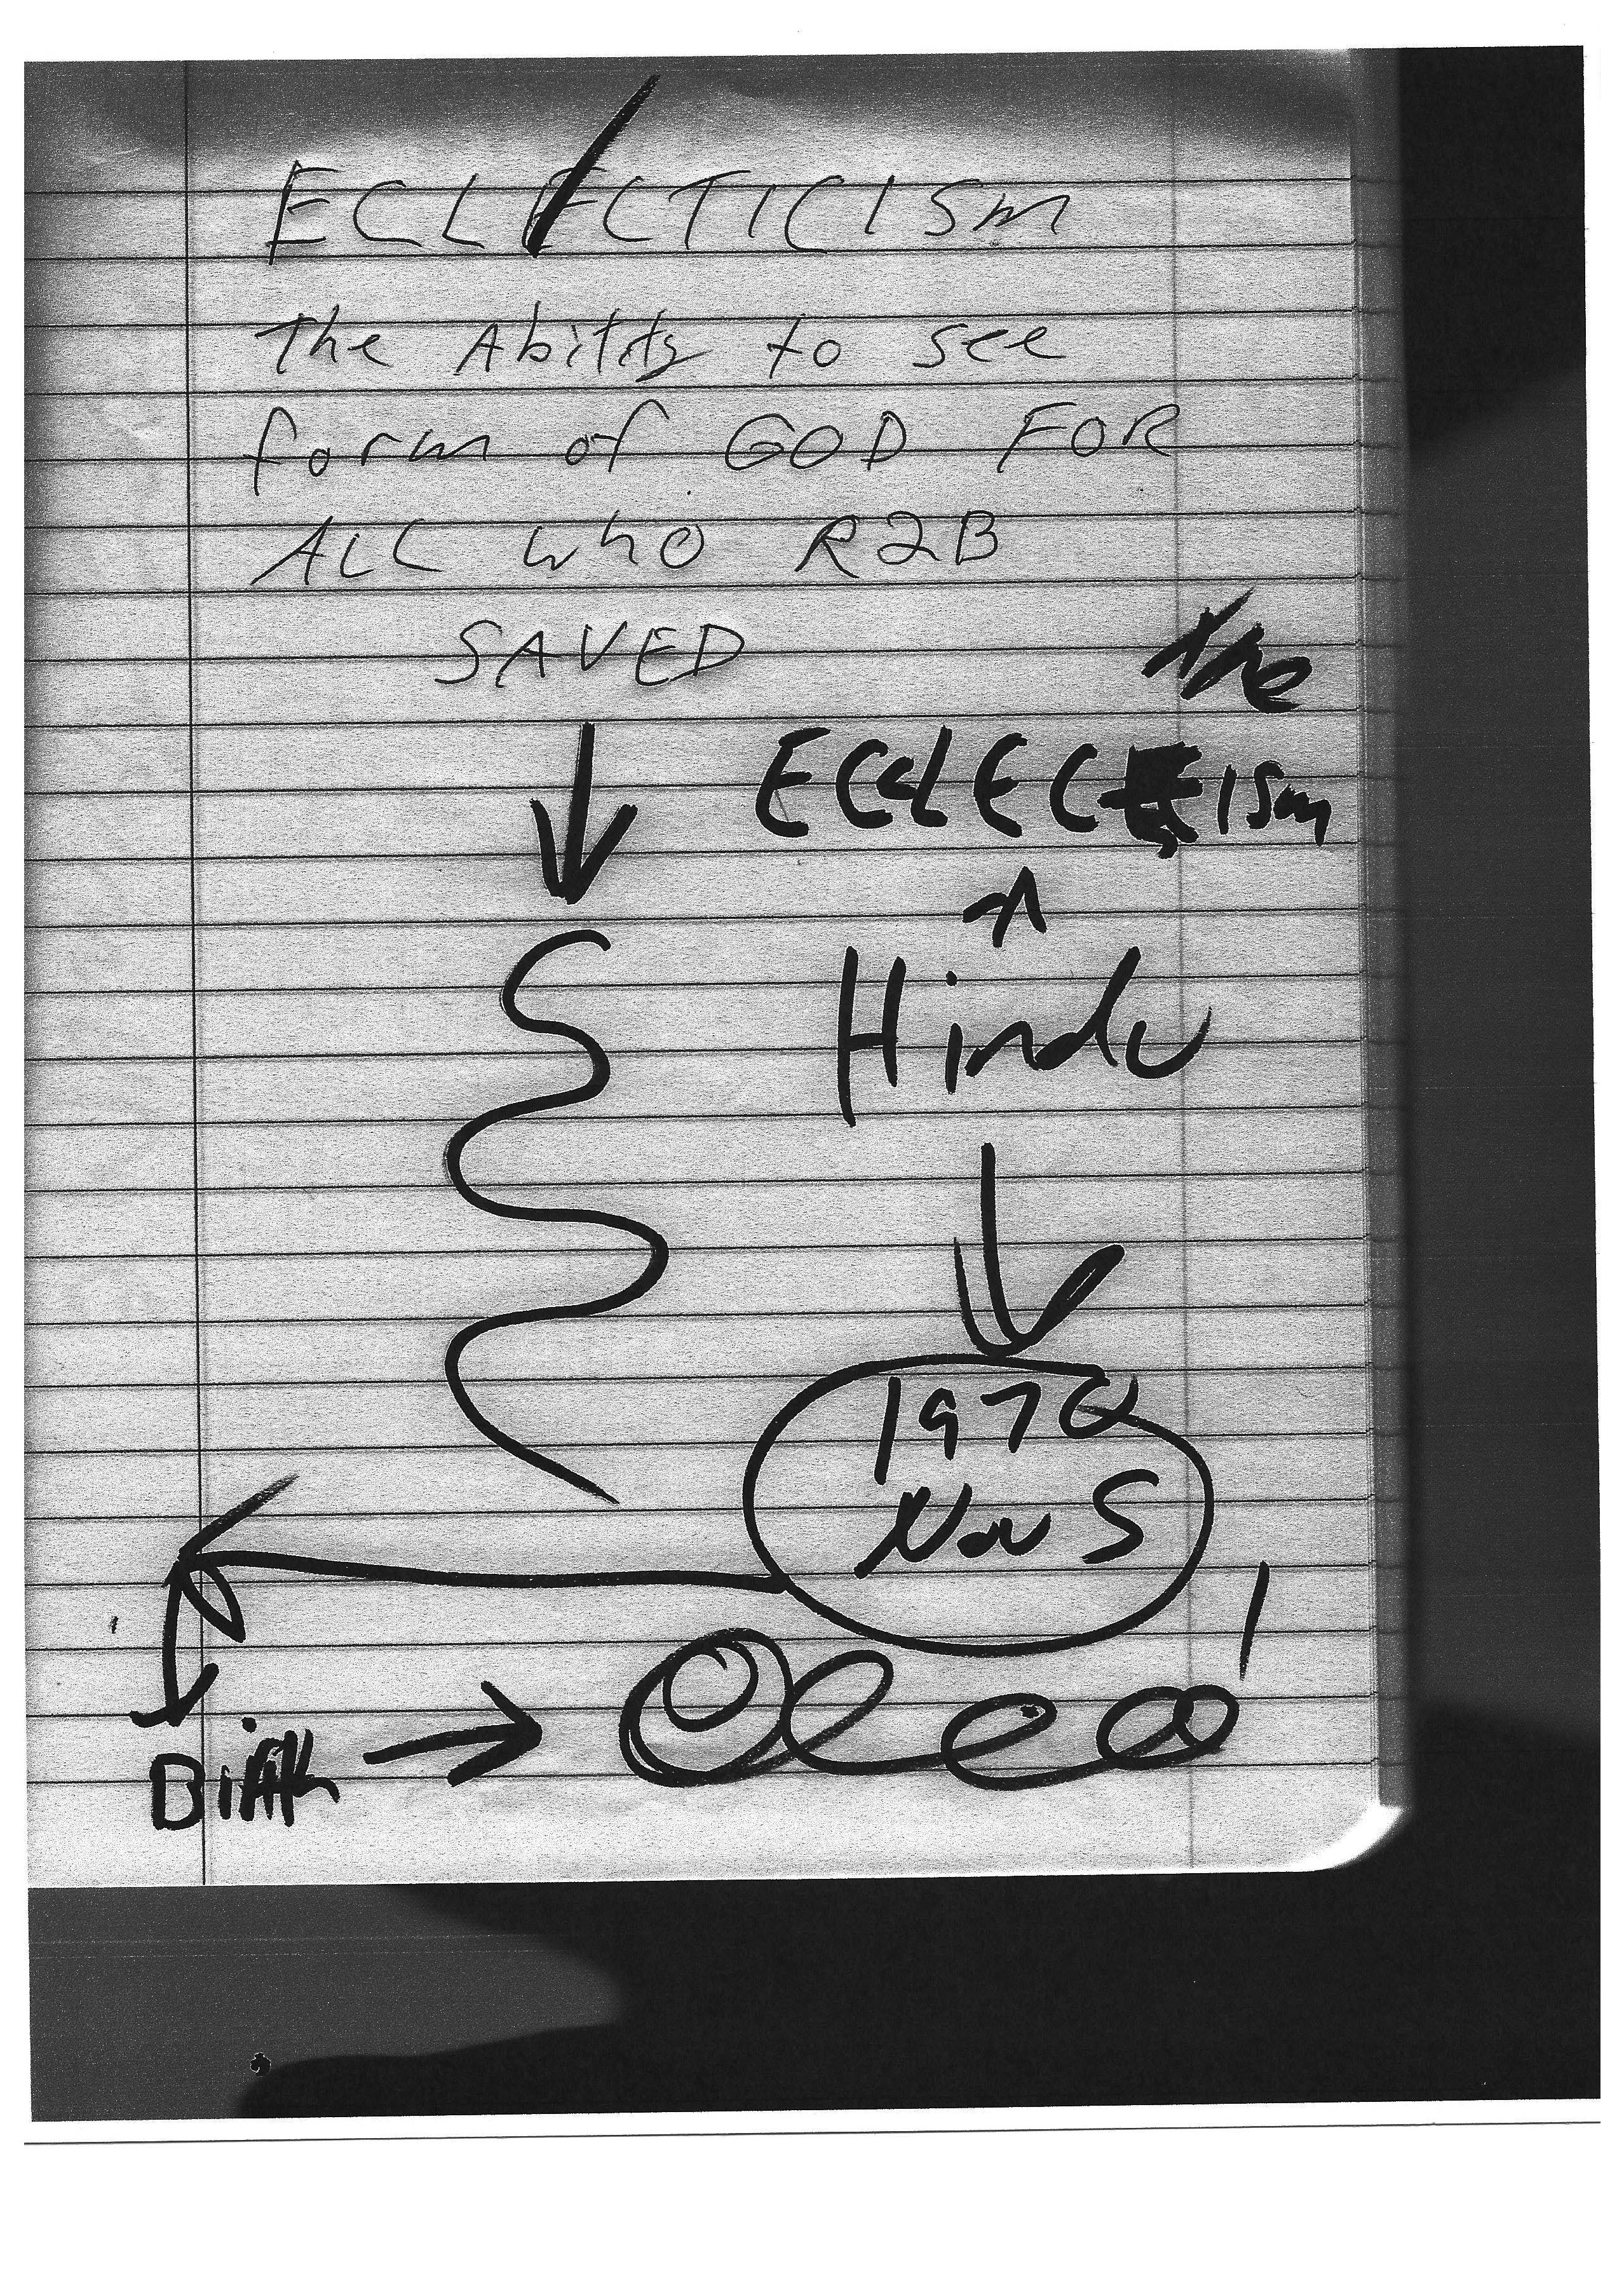 ECLECTICISM
The Ability to see
form of GOD FOR
ALL who R2B
SAVED
the
Hindu
Nov 5
Birth